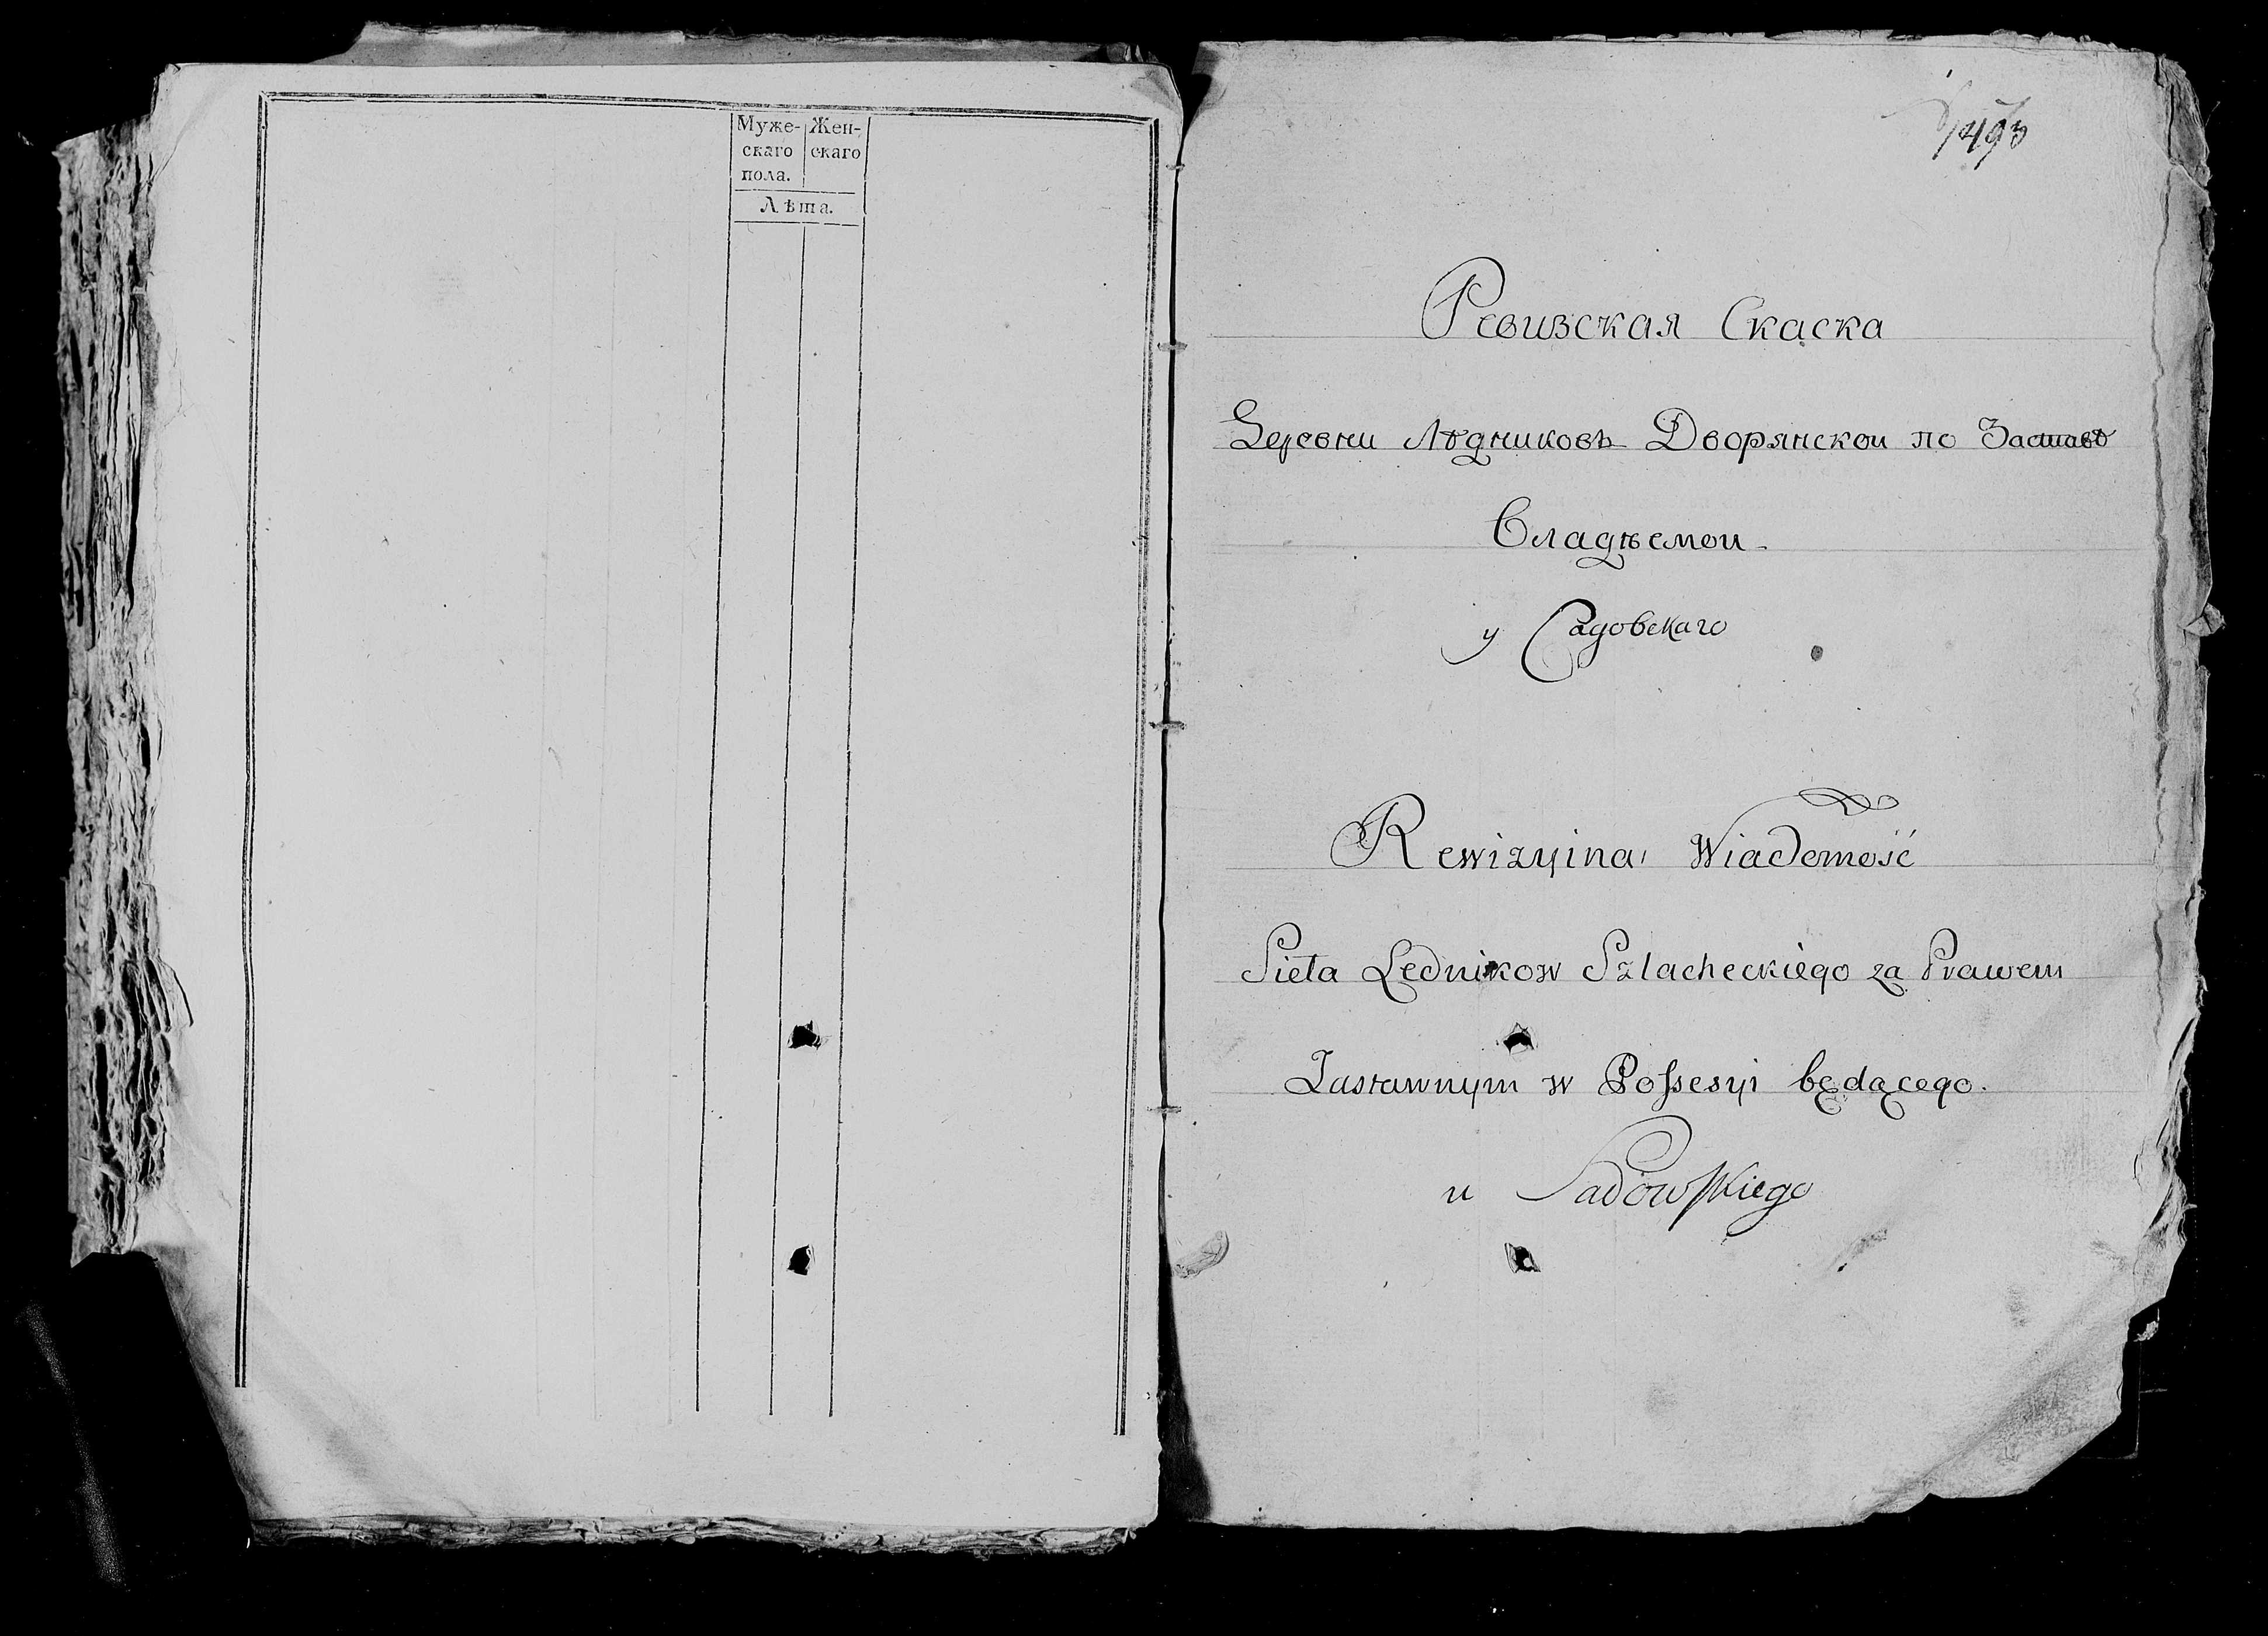 Муже- Жен-
скаго скаго
пола.
Лѣта.
1493
Ревизская Скаска
Деревни Лѣдниковъ Дворянской по Заставѣ
Владѣемои
у Садовскаго
Rewizyina Wiadomość
Sieła Lednikow Szlacheckiego za Prawem
Zastawnym w Possesyi będącego.
u Sadowskiego